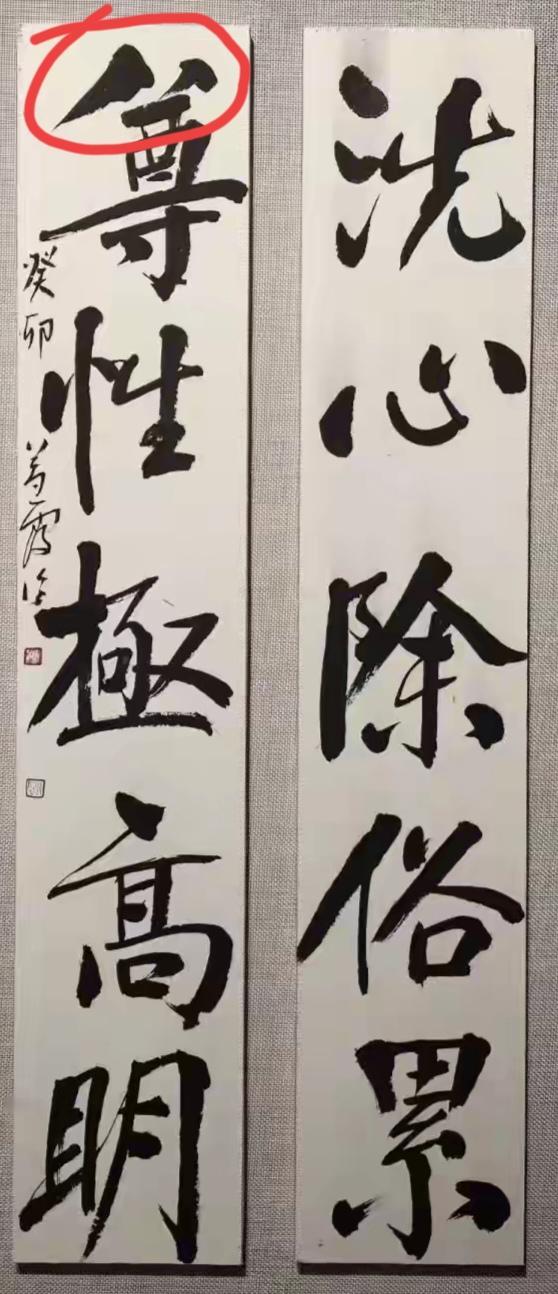 洗心除俗累
尊性極高明
癸卯